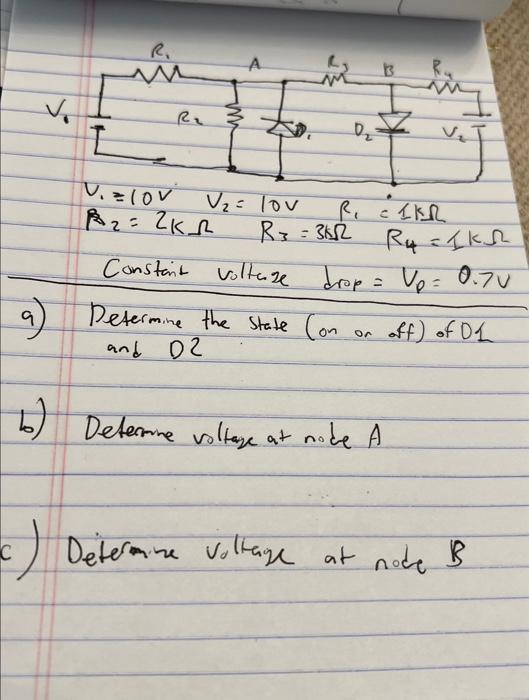 R₁ A R₃ B R₄
V₁ R₂ D₁ D₂ V₂
V₁ = 10V V₂ = 10V R₁ = 1KΩ
R₂ = 2KΩ R₃ = 3KΩ R₄ = 1KΩ
Constant voltage drop = V_D = 0.7V
a) Determine the state (on or off) of D1
and D2
b) Determine voltage at node A
c) Determine voltage at node B